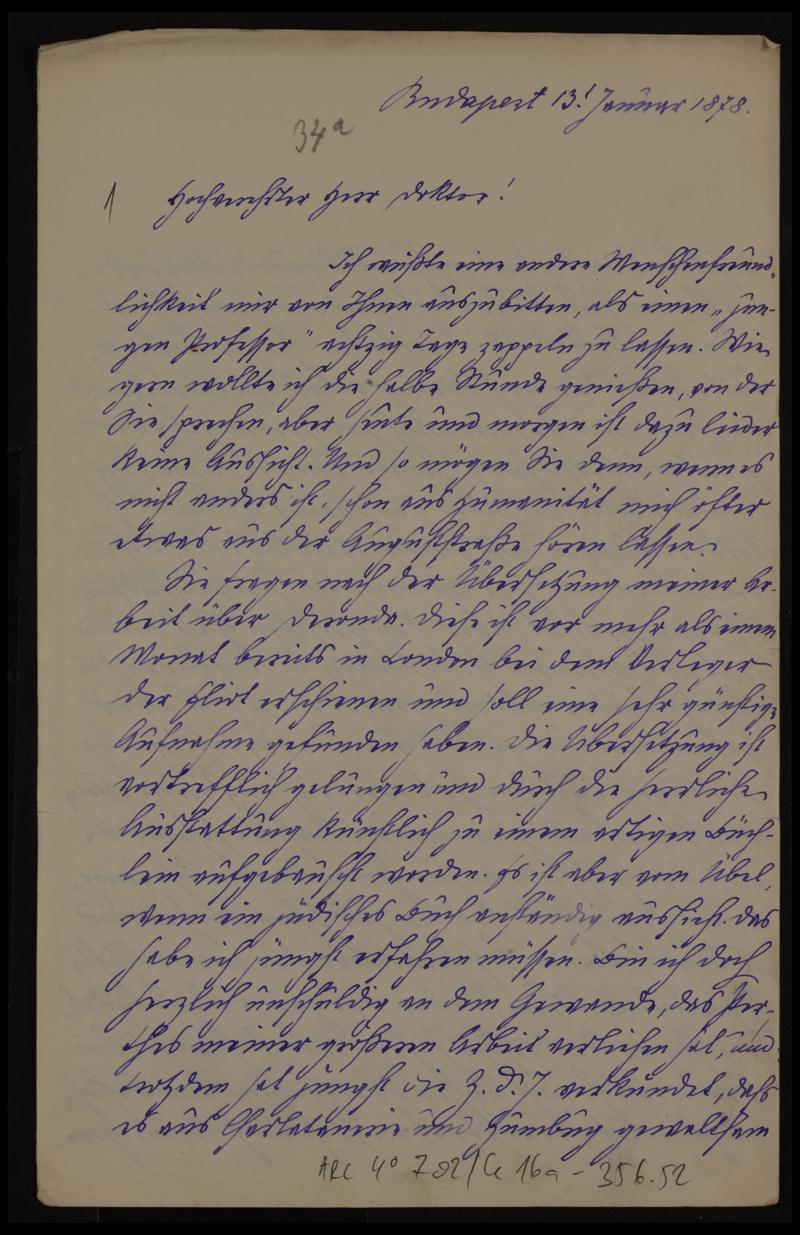 Budapest 13! Januar 1878.
34a
1 Hochverehrter Herr Doktor!
Ich wüßte eine andere Menschenfreund-
lichkeit mir von Ihnen auszubitten, als einen „jun-
gen Professor" achtzig Tage zappeln zu lassen. Wie
gern wollte ich die halbe Stunde genießen, von der
Sie sprechen, aber heute und morgen ist dazu leider
keine Aussicht. Und so mögen Sie denn, wenn es
nicht anders ist, schon aus Humanität mich öfter
etwas aus der Auguststraße hören lassen.
Sie fragen nach der Übersetzung meiner Ar-
beit über Deronda. Diese ist vor mehr als einem
Monat bereits in London bei dem Verleger
der Eliot erschienen und soll eine sehr günstige
Aufnahme gefunden haben. Die Übersetzung ist
vortrefflich gelungen und durch die herrliche
Ausstattung künstlich zu einem artigen Büch-
lein aufgebauscht worden. Es ist aber vom Übel,
wenn ein jüdisches Buch anständig aussieht. Das
habe ich jüngst erfahren müssen. Bin ich doch
herzlich unschuldig an dem Gewande, das Per-
thes meiner größeren Arbeit verliehen hat, und
trotzdem hat jüngst die Z. d. J. verkündet, daß
es aus Charlatanerie und Humbug gewaltsam
ARC 4° 792/Ce 16a - 356.52